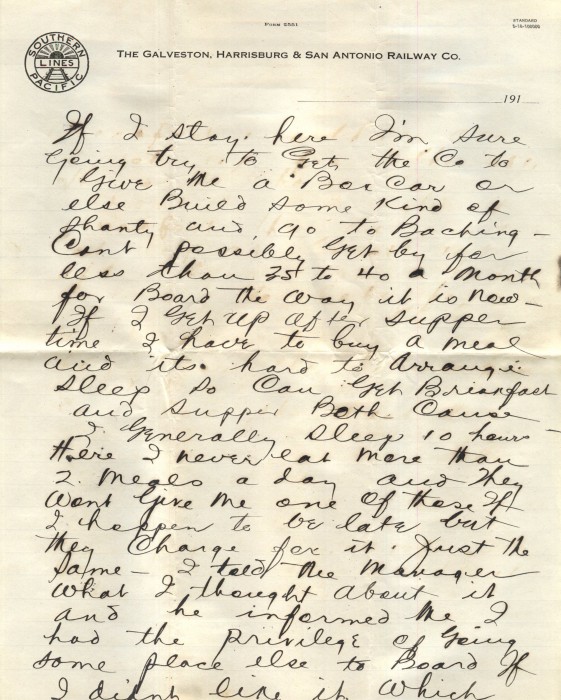 FORM 2501
STANDARD
SOUTHERN PACIFIC
LINES
THE GALVESTON, HARRISBURG & SAN ANTONIO RAILWAY CO.
191
If I stay here I'm sure
going try to Get the Co to
Give me a Box Car or
else Build some kind of
shanty and go to Baching -
Cant possibly Get by for
less than 35 to 40 a Month
for Board the way it is now -
If I Get up after supper
time I have to buy a meal
and its hard to Arrange
sleep so Can Get Breakfast
and supper Both Cause
I Generally sleep 10 hours -
Here I never eat more than
2 meals a day and They
Wont Give me one of those If
I happen to be late but
they Charge for it Just the
Same - I told the Manager
what I thought about it
and he informed me I
had the privilege of Going
some place else to Board If
I didnt like it Which